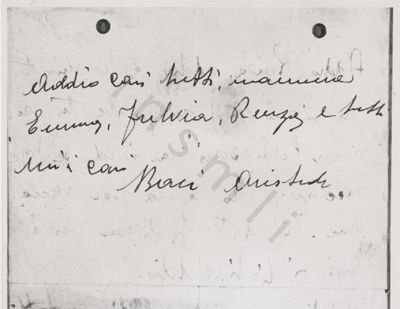 Addio cari tutti, mamma
Emma, Fulvia, Renzo, e tutti
miei cari
Baci Aristide
insmli